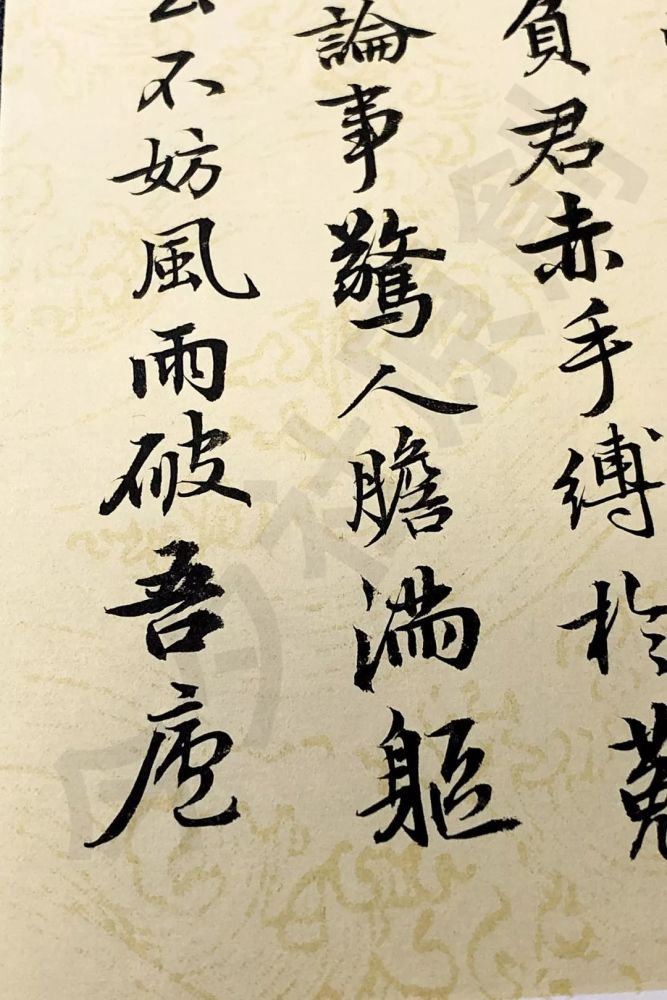 負君赤手縛於菟
論事驚人膽滿軀
不妨風雨破吾廬
社原創